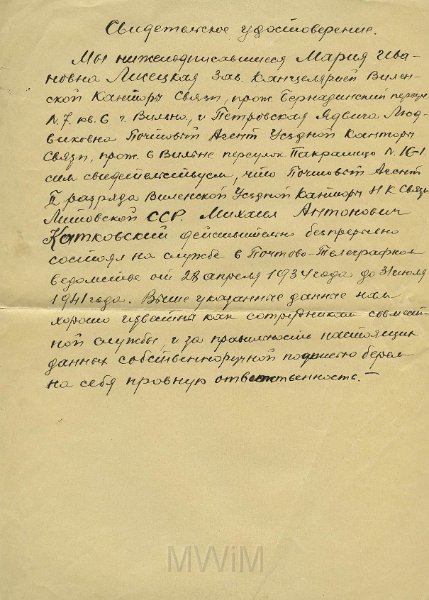 Свидетельское удостоверение.
Мы нижеподписавшиеся Мария Ива-
новна Лисецкая Зав. Канцелярией Вилен-
ской Канторы Связи, прож. Бернадинский переул
№7 кв. 6 г. Вильна, и Петровская Ядвига Люд-
виковна Почтовый Агент Уездной Канторы
Связи, прож. в Вильне переулок № 16-1
сим свидетельствуем, что Почтовый Агент
II разряда Виленской Уездной Канторы НК Связи
Литовской ССР Михаил Антонович
Катковский действительно безпрерывно
состоял на службе в Почтово-Телеграфном
ведомстве от 28 апреля 1934 года до 31 июля
1941 года. Выше указанные данные нам
хорошо известны как сотрудникам совмест-
ной службы, и за правильность настоящих
данных собственноручной подписью берем
на себя правную ответственность.
MWiM